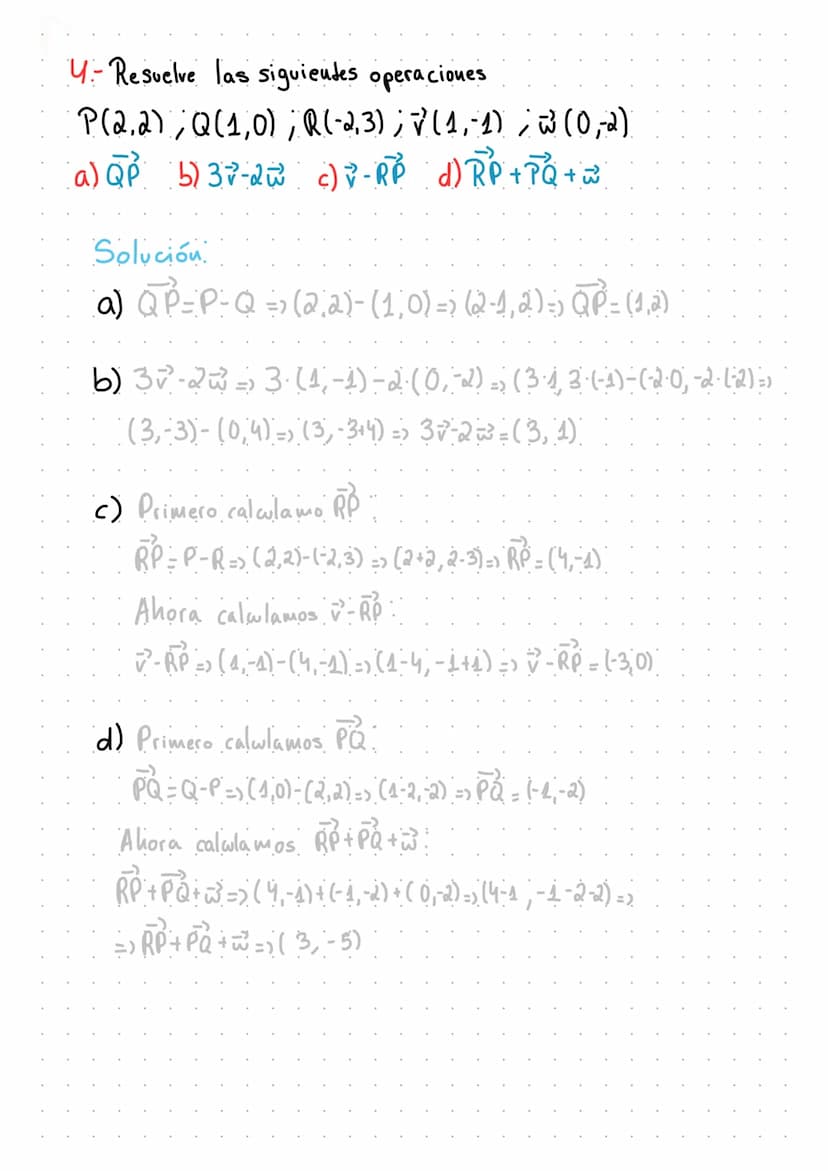 4.- Resuelve las siguientes operaciones
P(2,2) ; Q(1,0) ; R(-2,3) ; v⃗(1,-1) ; w⃗(0,-2)
a) QP⃗ b) 3v⃗-2w⃗ c) v⃗-RP⃗ d) RP⃗+PQ⃗+w⃗
Solución:
a) QP⃗=P-Q=>(2,2)-(1,0)=>(2-1,2)=>QP⃗=(1,2)
b) 3v⃗-2w⃗=>3·(1,-1)-2·(0,-2)=>(3·1,3·(-1)-(-2·0,-2·(-2)=>
(3,-3)-(0,4)=>(3,-3+4)=>3v⃗-2w⃗=(3,1)
c) Primero calculamo RP⃗:
RP⃗=P-R=>(2,2)-(-2,3)=>(2+2,2-3)=>RP⃗=(4,-1)
Ahora calculamos v⃗-RP⃗:
v⃗-RP⃗=>(1,-1)-(4,-1)=>(1-4,-1+1)=>v⃗-RP⃗=(-3,0)
d) Primero calculamos PQ⃗:
PQ⃗=Q-P=>(1,0)-(2,2)=>(1-2,-2)=>PQ⃗=(-1,-2)
Ahora calculamos RP⃗+PQ⃗+w⃗:
RP⃗+PQ⃗+w⃗=>(4,-1)+(-1,-2)+(0,-2)=>(4-1,-1-2-2)=>
=>RP⃗+PQ⃗+w⃗=>(3,-5)